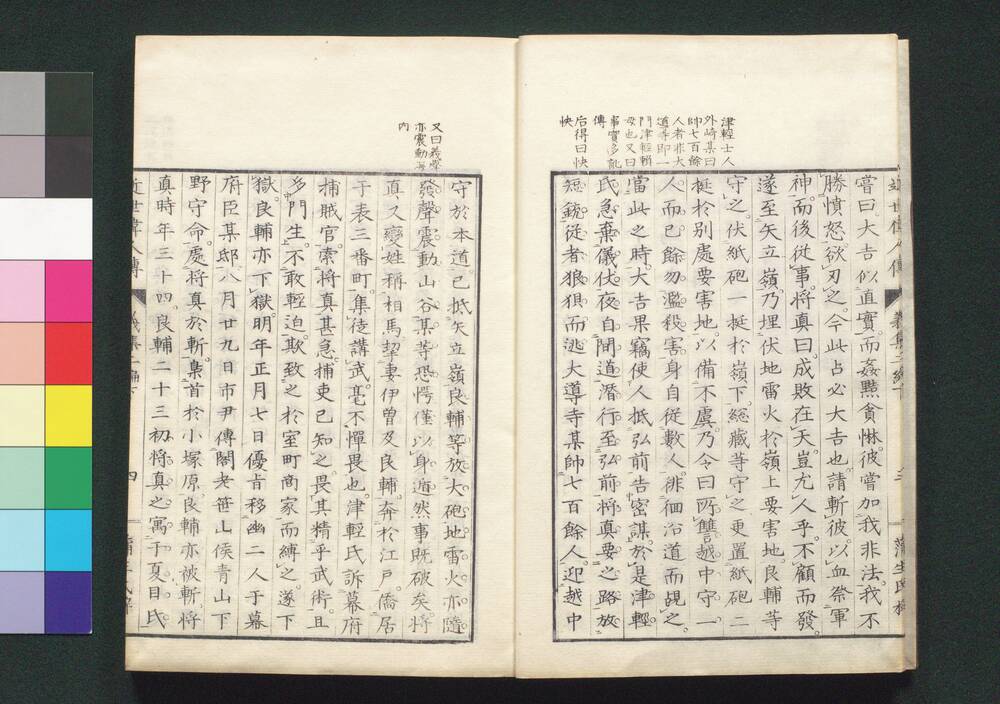 津輕士人
外崎某曰
帥七百餘
人者非大
道寺即一
門津輕輯
母也又曰
事實多訛
傳
后得曰快
快
嘗曰大𠮷似直實而姦黠貪惏彼嘗加我非法我不
勝憤怒欲刃之今此占必大𠮷也請斬彼以血祭軍
神而後從事將真曰成敗在天豈尤人乎不顧而發
遂至矢立嶺乃埋伏地雷火於嶺上要害地良輔等
守之伏紙砲一挺於嶺下緫藏等守之更置紙砲二
挺於別處要害地以備不虞乃令曰所讐越中守一
人而已餘勿濫殺害身自從數人徘徊沿道而覘之
當此之時大𠮷果竊使人抵弘前告密謀於是津輕
氏急棄儀仗夜自間道潛行至弘前將真要之路放
短銃從者狼狽而逃大導寺某帥七百餘人迎越中
又曰義擧
亦震動海
内
守於本道已抵矢立嶺良輔等放大砲地雷火亦隨
發聲震動山谷某等恐愕僅以身遁然事既破矣將
真又變姓稱相馬挈妻伊曾及良輔奔於江戸僑居
于表三番町集徒講武毫不憚畏也津輕氏訴幕府
捕賊官索將真甚急捕吏已知之畏其精乎武術且
多門生不敢輕迫欺致之於室町商家而縛之遂下
獄良輔亦下獄明年正月七日優旨移幽二人于幕
府臣某邸八月廿九日市尹傳閣老笹山侯青山下
野守命處將真於斬梟首於小塚原良輔亦被斬將
真時年三十四良輔二十三初將真之寓于夏目氏
近世偉人傳 義集二編下 四